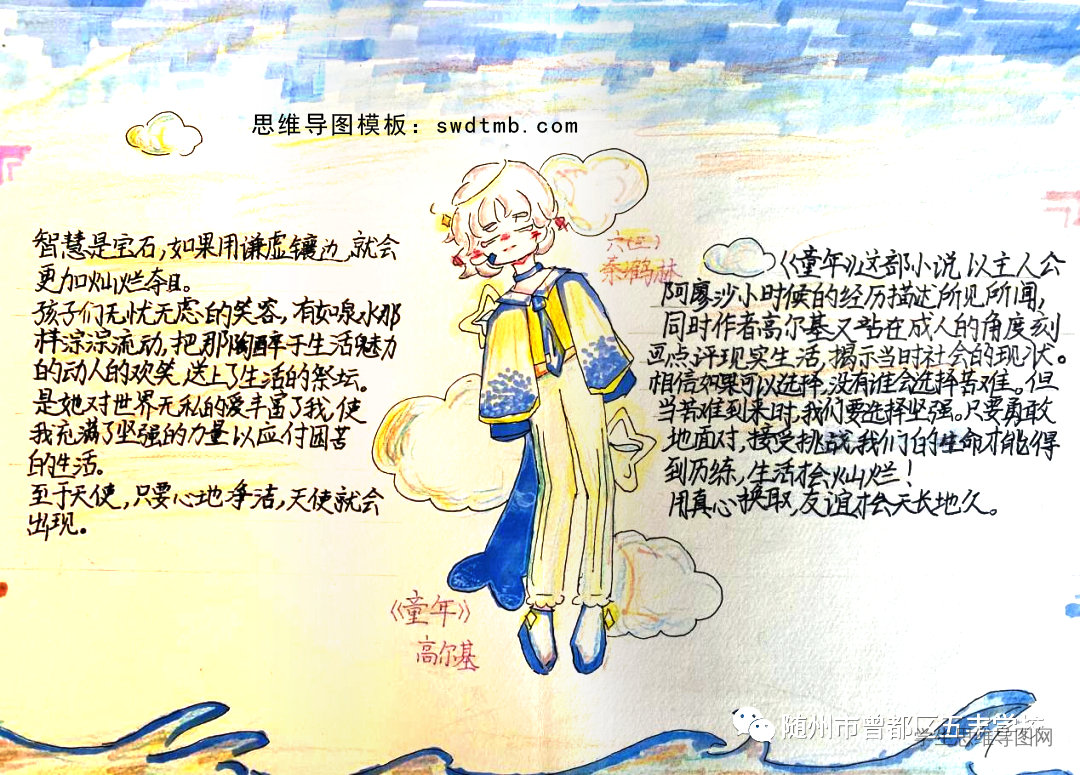 思维导图模板：swdtmb.com
智慧是宝石，如果用谦虚镶边，就会
更加灿烂夺目。
孩子们无忧无虑的笑容，有如泉水那
样淙淙流动，把那陶醉于生活魅力
的动人的欢笑，送上了生活的祭坛。
是她对世界无私的爱丰富了我，使
我充满了坚强的力量以应付困苦
的生活。
至于天使，只要心地净洁，天使就会
出现。
六（二）
秦鹤林
《童年》这部小说以主人公
阿廖沙小时候的经历描述所见所闻，
同时作者高尔基又站在成人的角度刻
画点评现实生活，揭示当时社会的现状。
相信如果可以选择，没有谁会选择苦难。但
当苦难到来时，我们要选择坚强。只要勇敢
地面对，接受挑战，我们的生命才能得
到历练，生活才会灿烂！
用真心换取，友谊才会天长地久。
《童年》
高尔基
随州市曾都区五丰学校
学生思维导图网